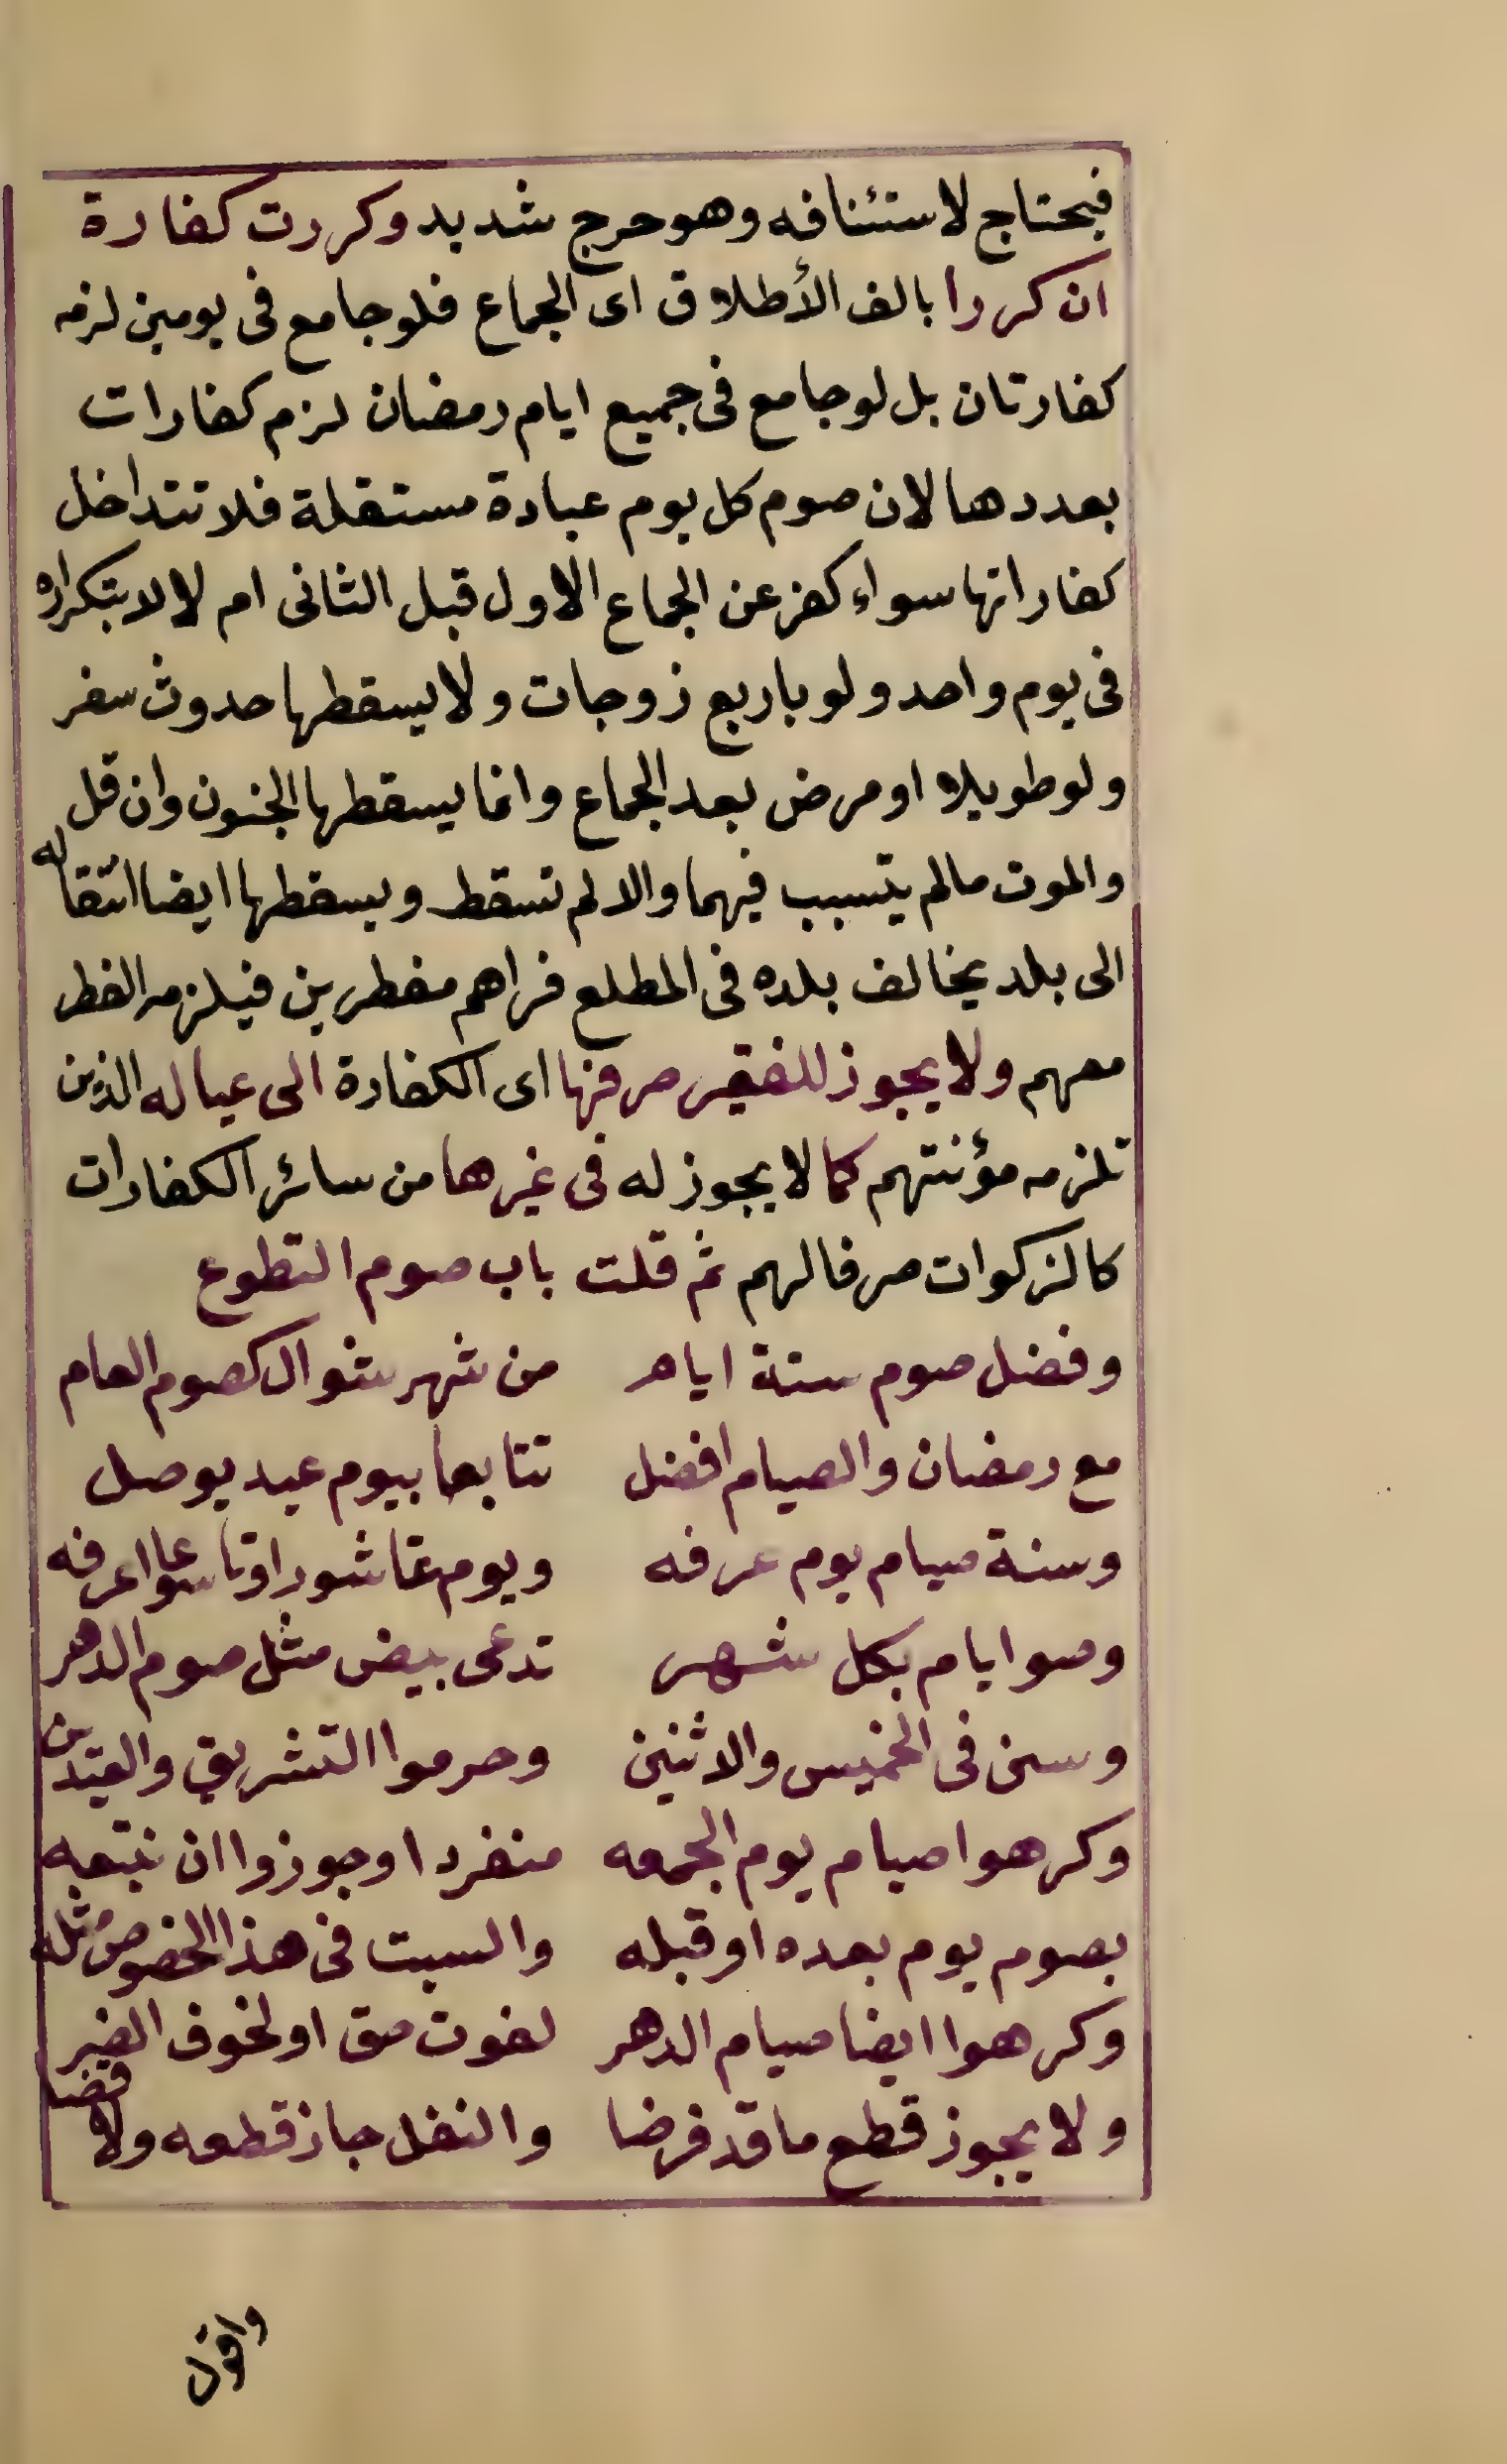 فيحتاج لاستئنافه وهو حرج شديد وكررت كفارة
ان كررا بالف الأطلاق اى الجماع فلو جامع فى يومين لزمه
كفارتان بل لو جامع فى جميع ايام رمضان لزم كفارات
بعددها لان صوم كل يوم عبادة مستقلة فلا تتداخل
كفاراتها سواء كفر عن الجماع الاول قبل الثانى ام لا لا بتكراره
فى يوم واحد ولو باربع زوجات ولا يسقطها حدوث سفر
ولو طويلا او مرض بعد الجماع وانما يسقطها الجنون وان قل
والموت مالم يتسبب فيهما والا لم تسقط ويسقطها ايضا انتقاله
الى بلد يخالف بلده فى المطلع فراهم مفطرين فيلزمه الفطر
معهم ولا يجوز للفقير صرفها اى الكفارة الى عياله الذين
تلزمه مؤنتهم كما لا يجوز له فى غيرها من سائر الكفارات
كالزكوات صرفا لهم ثم قلت باب صوم التطوع
وفضل صوم ستة ايام من شهر شوال كصوم العام
مع رمضان والصيام افضل تتابعا بيوم عيد يوصل
وسنة صيام يوم عرفه ويوم عاشورا وتاسوعا اعرفه
وصوا يام بكل شهر تدعى بيض مثل صوم الدهر
وسن فى الخميس والاثنين وحرموا التشريق والعيدين
وكرهوا صيام يوم الجمعه منفردا وجوزوا ان نتبعه
بصوم يوم بعده او قبله والسبت فى هذا الخصوص مثله
وكرهوا ايضا صيام الدهر لفوت حق او لخوف الضير
ولا يجوز قطع ما قد فرضا والنفل جاز قطعه ولا قضا
واقول